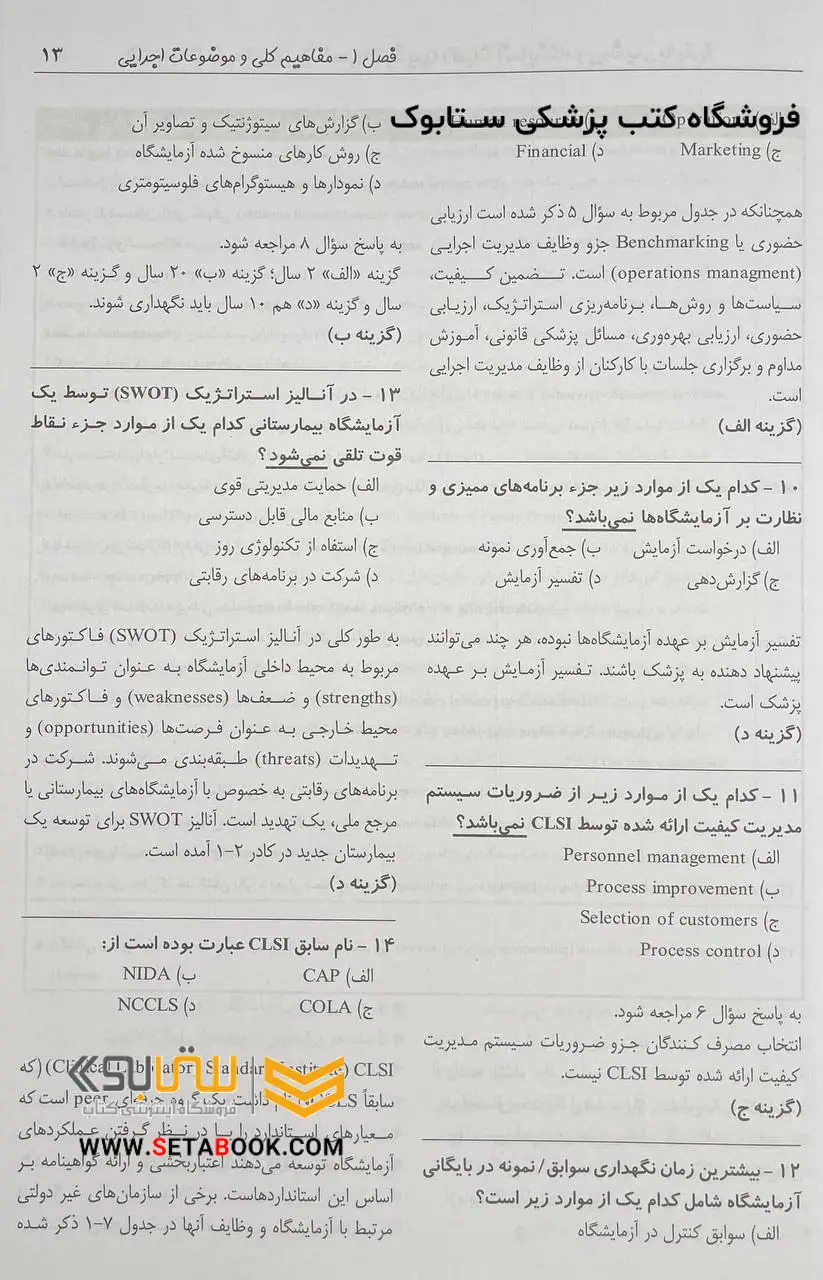 فصل ۱- مفاهیم کلی و موضوعات اجرایی ۱۳
فروشگاه کتب پزشکی ستابوک
ج) Marketing د) Financial
همچنانکه در جدول مربوط به سؤال ۵ ذکر شده است ارزیابی
حضوری یا Benchmarking جزو وظایف مدیریت اجرایی
(operations managment) است. تضمین کیفیت،
سیاست‌ها و روش‌ها، برنامه‌ریزی استراتژیک، ارزیابی
حضوری، ارزیابی بهره‌وری، مسائل پزشکی قانونی، آموزش
مداوم و برگزاری جلسات با کارکنان از وظایف مدیریت اجرایی
است.
(گزینه الف)
۱۰- کدام یک از موارد زیر جزء برنامه‌های ممیزی و
نظارت بر آزمایشگاه‌ها نمی‌باشد؟
الف) درخواست آزمایش ب) جمع‌آوری نمونه
ج) گزارش‌دهی د) تفسیر آزمایش
تفسیر آزمایش بر عهده آزمایشگاه‌ها نبوده، هر چند می‌توانند
پیشنهاد دهنده به پزشک باشند. تفسیر آزمایش بر عهده
پزشک است.
(گزینه د)
۱۱- کدام یک از موارد زیر از ضروریات سیستم
مدیریت کیفیت ارائه شده توسط CLSI نمی‌باشد؟
الف) Personnel management
ب) Process improvement
ج) Selection of customers
د) Process control
به پاسخ سؤال ۶ مراجعه شود.
انتخاب مصرف کنندگان جزو ضروریات سیستم مدیریت
کیفیت ارائه شده توسط CLSI نیست.
(گزینه ج)
۱۲- بیشترین زمان نگهداری سوابق/ نمونه در بایگانی
آزمایشگاه شامل کدام یک از موارد زیر است؟
الف) سوابق کنترل در آزمایشگاه
ب) گزارش‌های سیتوژنتیک و تصاویر آن
ج) روش کارهای منسوخ شده آزمایشگاه
د) نمودارها و هیستوگرام‌های فلوسیتومتری
به پاسخ سؤال ۸ مراجعه شود.
گزینه «الف» ۲ سال؛ گزینه «ب» ۲۰ سال و گزینه «ج» ۲
سال و گزینه «د» هم ۱۰ سال باید نگهداری شوند.
(گزینه ب)
۱۳- در آنالیز استراتژیک (SWOT) توسط یک
آزمایشگاه بیمارستانی کدام یک از موارد جزء نقاط
قوت تلقی نمی‌شود؟
الف) حمایت مدیریتی قوی
ب) منابع مالی قابل دسترسی
ج) استفاده از تکنولوژی روز
د) شرکت در برنامه‌های رقابتی
به طور کلی در آنالیز استراتژیک (SWOT) فاکتورهای
مربوط به محیط داخلی آزمایشگاه به عنوان توانمندی‌ها
(strengths) و ضعف‌ها (weaknesses) و فاکتورهای
محیط خارجی به عنوان فرصت‌ها (opportunities) و
تهدیدات (threats) طبقه‌بندی می‌شوند. شرکت در
برنامه‌های رقابتی به خصوص با آزمایشگاه‌های بیمارستانی یا
مرجع ملی، یک تهدید است. آنالیز SWOT برای توسعه یک
بیمارستان جدید در کادر ۲-۱ آمده است.
(گزینه د)
۱۴- نام سابق CLSI عبارت بوده است از:
الف) CAP ب) NIDA
ج) COLA د) NCCLS
CLSI (Clinical Laboratory Standard Institute) (که
سابقاً NCCLS نام داشت یک گروه حرفه‌ای peer است که
معیارهای استاندارد را با در نظر گرفتن عملکردهای
آزمایشگاه توسعه می‌دهند اعتباربخشی و ارائه گواهینامه بر
اساس این استانداردهاست. برخی از سازمان‌های غیر دولتی
مرتبط با آزمایشگاه و وظایف آنها در جدول ۷-۱ ذکر شده
ستابوک
فروشگاه اینترنتی کتاب
WWW.SETABOOK.COM